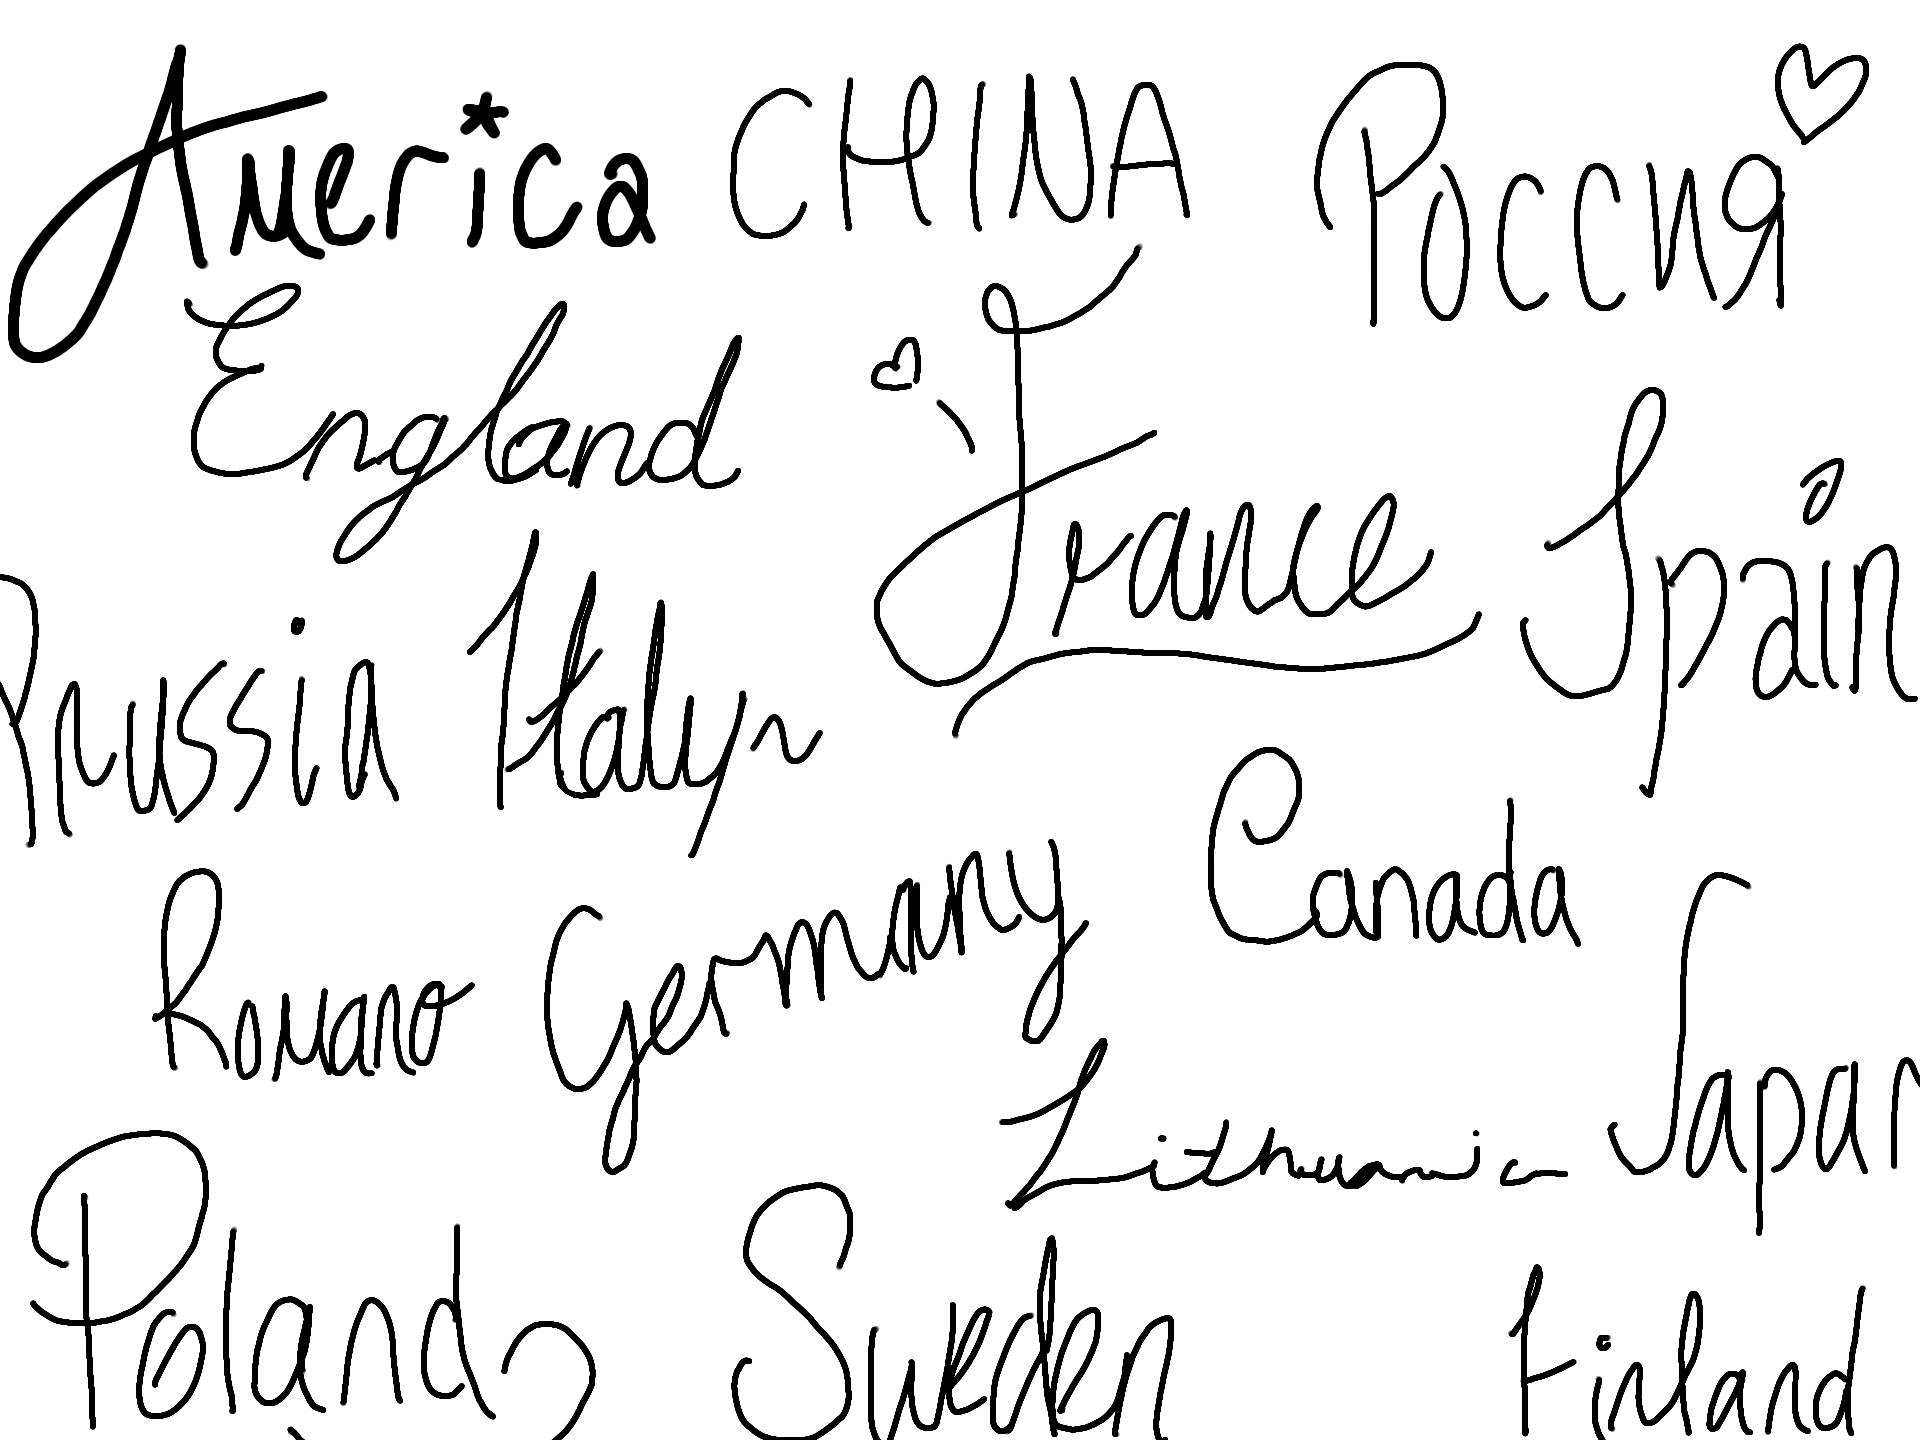 America CHINA Россия
England France Spain
Prussia Italy
Romano Germany Canada Japan
Lithuania
Poland Sweden Finland